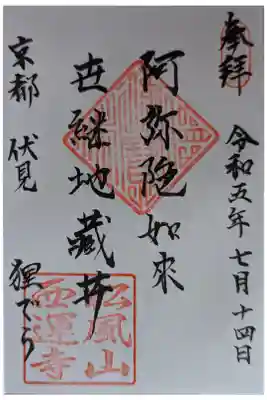 奉拝
令和五年七月十四日
阿弥陀如来
世継地蔵尊
京都 伏見 狸でら
松風山
西運寺